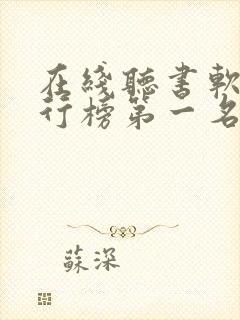 在綫聽書軟
行榜第一名
蘇深